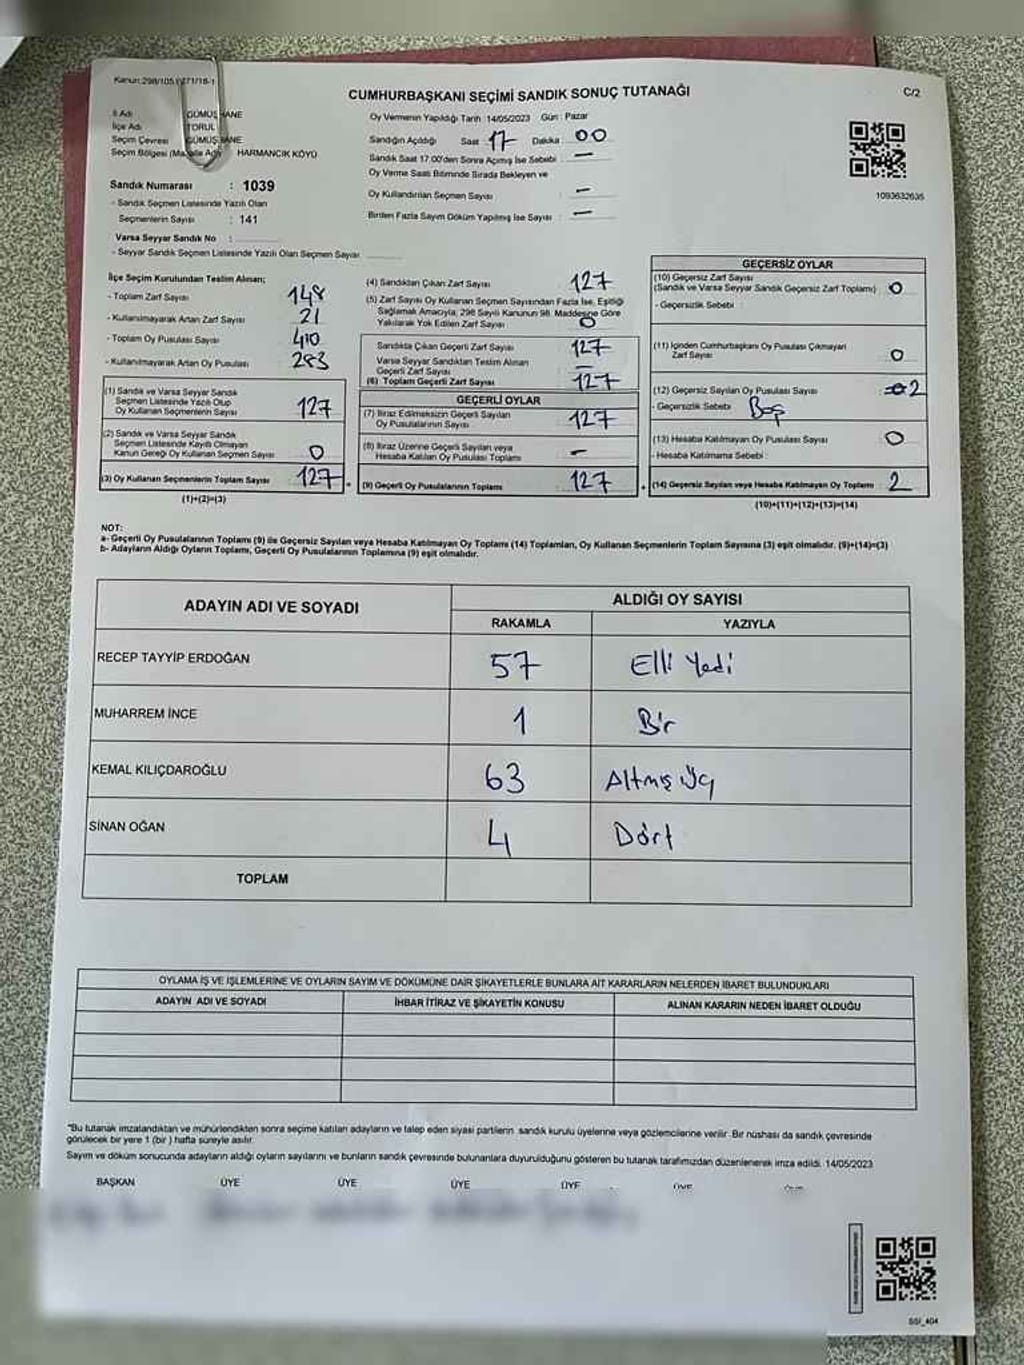 Kanun:298/105
CUMHURBAŞKANI SEÇİMİ SANDIK SONUÇ TUTANAĞI
C/2
İl Adı GÜMÜŞHANE
İlçe Adı TORUL
Seçim Çevresi GÜMÜŞHANE
Seçim Bölgesi (Mahalle Adı) HARMANCIK KÖYÜ
Sandık Numarası : 1039
- Sandık Seçmen Listesinde Yazılı Olan
Seçmenlerin Sayısı : 141
Varsa Seyyar Sandık No :
- Seyyar Sandık Seçmen Listesinde Yazılı Olan Seçmen Sayısı
Oy Vermenin Yapıldığı Tarih 14/05/2023 Gün : Pazar
Sandığın Açıldığı Saat 17 Dakika 00
Sandık Saat 17:00'den Sonra Açmış İse Sebebi : —
Oy Verme Saati Bitiminde Sırada Bekleyen ve
Oy Kullandırılan Seçmen Sayısı : —
Birden Fazla Sayım Döküm Yapılmış İse Sayısı : —
1093632635
İlçe Seçim Kurulundan Teslim Alınan;
- Toplam Zarf Sayısı 148
- Kullanılmayarak Artan Zarf Sayısı 21
- Toplam Oy Pusulası Sayısı 410
- Kullanılmayarak Artan Oy Pusulası 283
(1) Sandık ve Varsa Seyyar Sandık
Seçmen Listesinde Yazılı Olup
Oy Kullanan Seçmenlerin Sayısı 127
(2) Sandık ve Varsa Seyyar Sandık
Seçmen Listesinde Kayıtlı Olmayan
Kanun Gereği Oy Kullanan Seçmen Sayısı 0
(3) Oy Kullanan Seçmenlerin Toplam Sayısı 127
(1)+(2)=(3)
(4) Sandıktan Çıkan Zarf Sayısı 127
(5) Zarf Sayısı Oy Kullanan Seçmen Sayısından Fazla İse, Eşitliği
Sağlamak Amacıyla, 298 Sayılı Kanunun 98. Maddesine Göre
Yakılarak Yok Edilen Zarf Sayısı 0
Sandıkta Çıkan Geçerli Zarf Sayısı 127
Varsa Seyyar Sandıktan Teslim Alınan
Geçerli Zarf Sayısı —
(6) Toplam Geçerli Zarf Sayısı 127
GEÇERLİ OYLAR
(7) İtiraz Edilmeksizin Geçerli Sayılan
Oy Pusulalarının Sayısı 127
(8) İtiraz Üzerine Geçerli Sayılan veya
Hesaba Katılan Oy Pusulası Toplamı —
(9) Geçerli Oy Pusulalarının Toplamı 127
GEÇERSİZ OYLAR
(10) Geçersiz Zarf Sayısı
(Sandık ve Varsa Seyyar Sandık Geçersiz Zarf Toplamı) 0
- Geçersizlik Sebebi :
(11) İçinden Cumhurbaşkanı Oy Pusulası Çıkmayan
Zarf Sayısı 0
(12) Geçersiz Sayılan Oy Pusulası Sayısı 2
- Geçersizlik Sebebi : Boş
(13) Hesaba Katılmayan Oy Pusulası Sayısı 0
- Hesaba Katılmama Sebebi :
(14) Geçersiz Sayılan veya Hesaba Katılmayan Oy Toplamı 2
(10)+(11)+(12)+(13)=(14)
NOT:
a- Geçerli Oy Pusulalarının Toplamı (9) ile Geçersiz Sayılan veya Hesaba Katılmayan Oy Toplamı (14) Toplamları, Oy Kullanan Seçmenlerin Toplam Sayısına (3) eşit olmalıdır. (9)+(14)=(3)
b- Adayların Aldığı Oyların Toplamı, Geçerli Oy Pusulalarının Toplamına (9) eşit olmalıdır.
ADAYIN ADI VE SOYADI ALDIĞI OY SAYISI
RAKAMLA YAZIYLA
RECEP TAYYİP ERDOĞAN 57 Elli Yedi
MUHARREM İNCE 1 Bir
KEMAL KILIÇDAROĞLU 63 Altmış Üç
SİNAN OĞAN 4 Dört
TOPLAM
OYLAMA İŞ VE İŞLEMLERİNE VE OYLARIN SAYIM VE DÖKÜMÜNE DAİR ŞİKAYETLERLE BUNLARA AİT KARARLARIN NELERDEN İBARET BULUNDUKLARI
ADAYIN ADI VE SOYADI İHBAR İTİRAZ VE ŞİKAYETİN KONUSU ALINAN KARARIN NEDEN İBARET OLDUĞU
*Bu tutanak imzalandıktan ve mühürlendikten sonra seçime katılan adayların ve talep eden siyasi partilerin sandık kurulu üyelerine veya gözlemcilerine verilir. Bir nüshası da sandık çevresinde
görülecek bir yere 1 (bir) hafta süreyle asılır.
Sayım ve döküm sonucunda adayların aldığı oyların sayılarını ve bunların sandık çevresinde bulunanlara duyurulduğunu gösteren bu tutanak tarafımızdan düzenlenerek imza edildi. 14/05/2023
BAŞKAN ÜYE ÜYE ÜYE ÜYE ÜYE
SSI_404